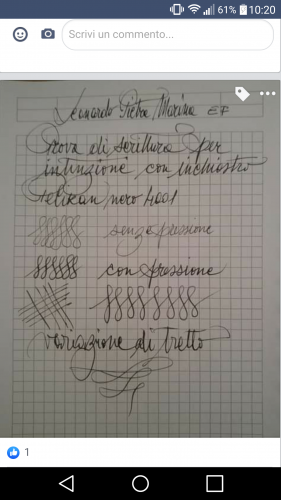 61% 10:20
Scrivi un commento...
Leonardo Pietra Marina EF
Prova di scrittura per
intinzione, con inchiostro
Pelikan nero 4001
senza pressione
con pressione
variazione di tretto
1